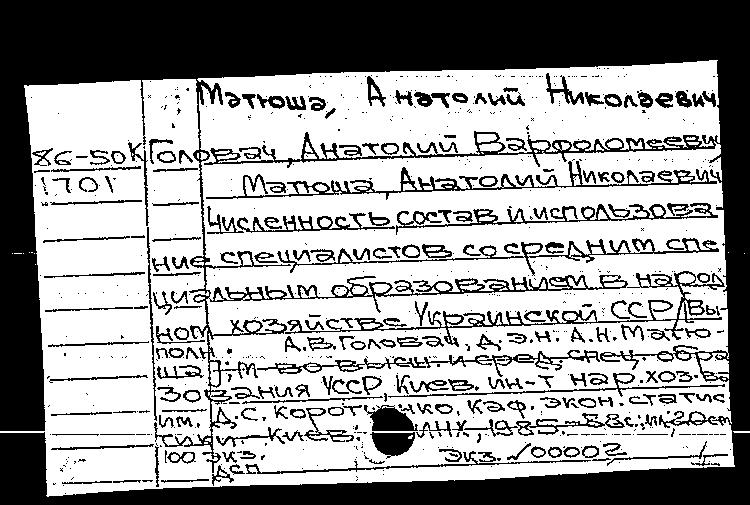 Матюша, Анатолий Николаевич
86-50К Головач, Анатолий Варфоломеевич
1701 Матюша, Анатолий Николаевич
Численность, состав и использова-
ние специалистов со средним спе-
циальным образованием в народ
ном хозяйстве Украинской ССР / [Вы-
полн. А.В. Головач, д.э.н. А.Н. Матю-
ша]; М-во высш. и сред. спец. обра
зования УССР, Киев. ин-т нар. хоз-ва
им. Д.С. Коротченко. Каф. экон. статис
тики. - Киев: ИНХ, 1985. - 88с.; ил; 20см
100 экз.
ДСП Экз. √00002